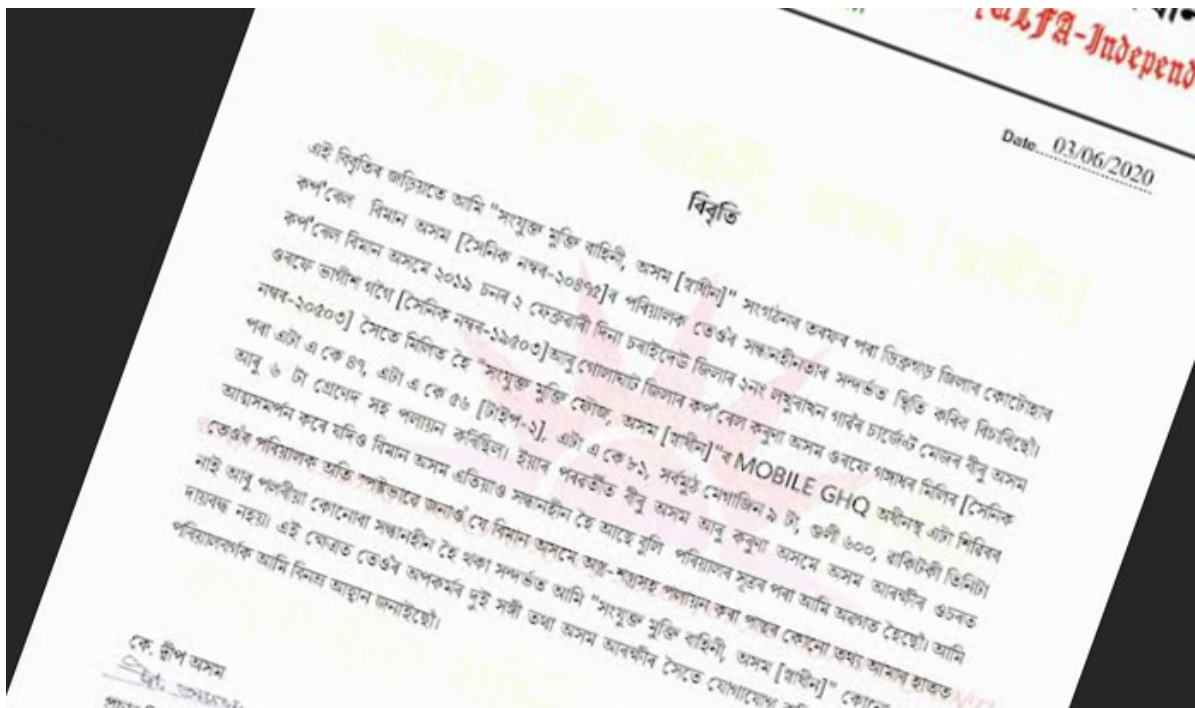 ULFA-Independ
Date... 03/06/2020
বিবৃতি
এই বিবৃতিৰ জড়িয়তে আমি "সংযুক্ত মুক্তি বাহিনী, অসম [স্বাধীন]" সংগঠনৰ তৰফৰ পৰা ডিব্ৰুগড় জিলাৰ কোটোহাৰ
কৰ্প'ৰেল বিমান অসম [সৈনিক নম্বৰ-২০৪৭৫]ৰ পৰিয়ালক তেওঁৰ সন্ধানহীনতাৰ সন্দৰ্ভত স্থিতি কৰিব বিচাৰিছো।
কৰ্প'ৰেল বিমান অসমে ২০১৯ চনৰ ২ ফেব্ৰুৱাৰী দিনা চৰাইদেউ জিলাৰ ১নং লখুৰাখন গাৱঁৰ চাৰ্জেন্ট মেজৰ বীৰু অসম
ওৰফে ভাগীশ গগৈ [সৈনিক নম্বৰ-১৯৫০৩]আৰু গোলাঘাট জিলাৰ কৰ্প'ৰেল কৰুণা অসম ওৰফে গঙ্গাধৰ মিলিৰ [সৈনিক
নম্বৰ-২০৫০৩] সৈতে মিলিত হৈ "সংযুক্ত মুক্তি ফৌজ, অসম [স্বাধীন]"ৰ MOBILE GHQ অধীনস্থ এটা শিৱিৰৰ
পৰা এটা এ কে ৪৭, এটা এ কে ৫৬ [টাইপ-২], এটা এ কে ৮১, সৰ্বমুঠ মেগাজিন ৯ টা, গুলী ৬০০, ৱাকিটকী তিনিটা
আৰু ৬ টা গ্ৰেণেদ সহ পলায়ন কৰিছিল। ইয়াৰ পৰৱৰ্তীত বীৰু অসম আৰু কৰুণা অসমে অসম আৰক্ষীৰ ওচৰত
আত্মসমৰ্পন কৰে যদিও বিমান অসম এতিয়াও সন্ধানহীন হৈ আছে বুলি পৰিয়ালৰ সূত্ৰৰ পৰা আমি অৱগত হৈছো। আমি
তেওঁৰ পৰিয়ালক অতি স্পষ্টভাৱে জনাওঁ যে বিমান অসমে অস্ত্ৰ-শস্ত্ৰসহ পলায়ন কৰা পাছৰ কোনো তথ্য আমাৰ হাতত
নাই আৰু পলৰীয়া কোনোবা সন্ধানহীন হৈ থকা সন্দৰ্ভত আমি "সংযুক্ত মুক্তি বাহিনী, অসম [স্বাধীন]" কোনো
দায়বদ্ধ নহয়। এই ক্ষেত্ৰত তেওঁৰ অপকৰ্মৰ দুই সঙ্গী তথা অসম আৰক্ষীৰ সৈতে যোগাযোগ
পৰিয়ালবৰ্গক আমি বিনম্ৰ আহ্বান জনাইছো।
কে: দ্বীপ অসম